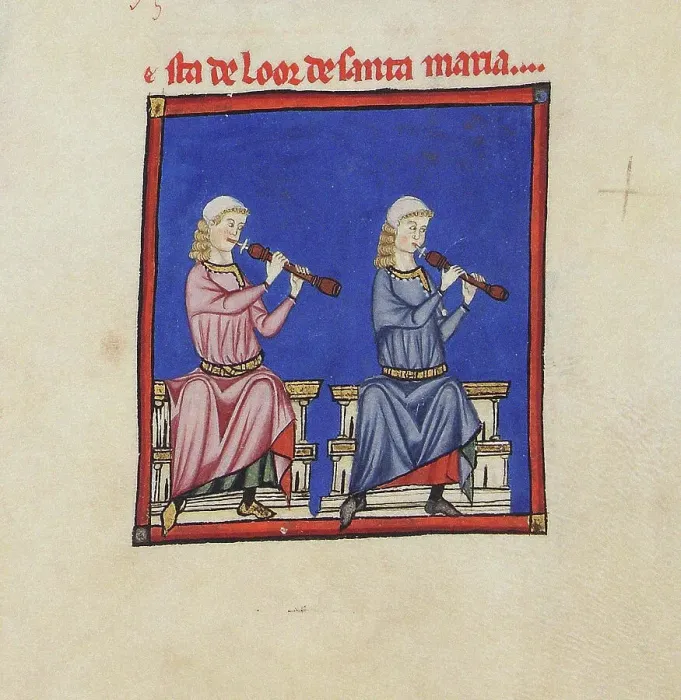 esta de loor de santa maria....